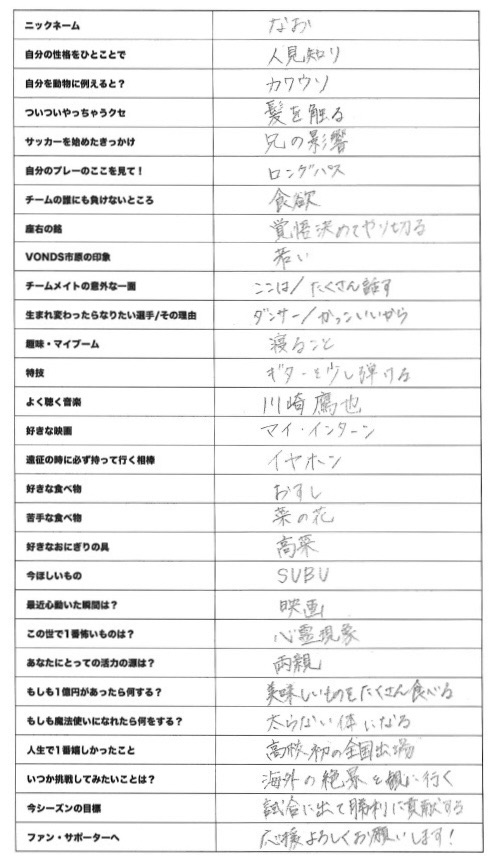 ニックネーム なお
自分の性格をひとことで 人見知り
自分を動物に例えると？ カワウソ
ついついやっちゃうクセ 髪を触る
サッカーを始めたきっかけ 兄の影響
自分のプレーのここを見て！ ロングパス
チームの誰にも負けないところ 食欲
座右の銘 覚悟決めてやり切る
VONDS市原の印象 若い
チームメイトの意外な一面 ここは/たくさん話す
生まれ変わったらなりたい選手/その理由 ダンサー/かっこいいから
趣味・マイブーム 寝ること
特技 ギターを少し弾ける
よく聴く音楽 川崎鷹也
好きな映画 マイ・インターン
遠征の時に必ず持って行く相棒 イヤホン
好きな食べ物 おすし
苦手な食べ物 菜の花
好きなおにぎりの具 高菜
今ほしいもの SUBU
最近心動いた瞬間は？ 映画
この世で1番怖いものは？ 心霊現象
あなたにとっての活力の源は？ 両親
もしも1億円があったら何する？ 美味しいものをたくさん食べる
もしも魔法使いになれたら何をする？ 太らない体になる
人生で1番嬉しかったこと 高校初の全国出場
いつか挑戦してみたいことは？ 海外の絶景を観に行く
今シーズンの目標 試合に出て勝利に貢献する
ファン・サポーターへ 応援よろしくお願いします！